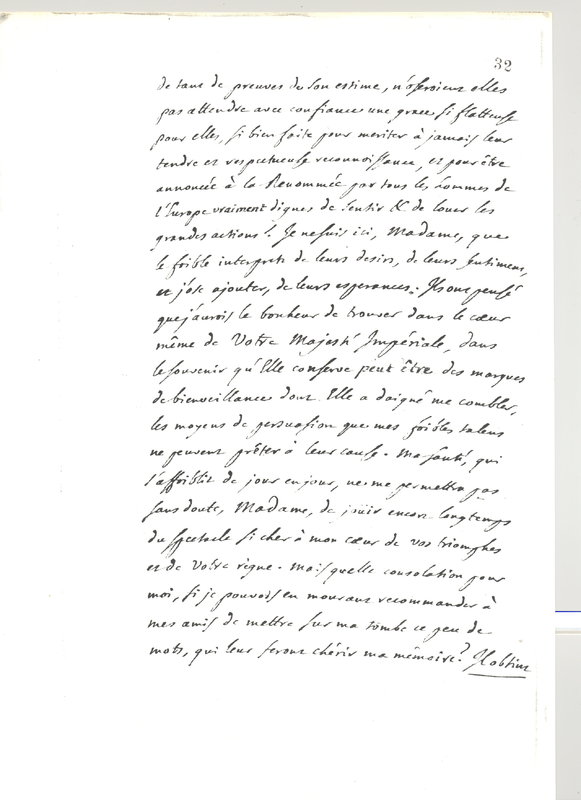 32
de tant de preuves de son estime, n'oseroient elles
pas attendre avec confiance une grace si flatteuse
pour elles, si bien faite pour meriter à jamais leur
tendre et respectueuse reconnoissance, et pour être
annoncée à la Renommée par tous les hommes de
l'Europe vraiment dignes de sentir & de louer les
grandes actions! Je ne suis ici, Madame, que
le foible interprete de leurs desirs, de leurs sentimens,
et j'ose ajouter, de leurs esperances: Ils ont pensé
que j'aurois le bonheur de trouver dans le cœur
même de Votre Majesté Impériale, dans
le souvenir qu'Elle conserve peut être des marques
de bienveillance dont Elle a daigné me combler,
les moyens de persuasion que mes foibles talens
ne peuvent prêter à leur cause. Ma santé, qui
s'affoiblit de jour en jour, ne me permettra pas
sans doute, Madame, de jouir encore longtemps
du spectacle si cher à mon cœur de vos triomphes
et de Votre règne. Mais quelle consolation pour
moi, si je pouvois en mourant recommander à
mes amis de mettre sur ma tombe ce peu de
mots, qui leur feront chérir ma mémoire? Il obtint